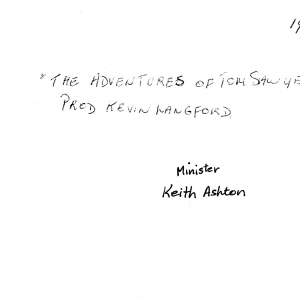 19
* THE ADVENTURES OF TOM SAWYE
PROD KEVIN LANGFORD
Minister
Keith Ashton